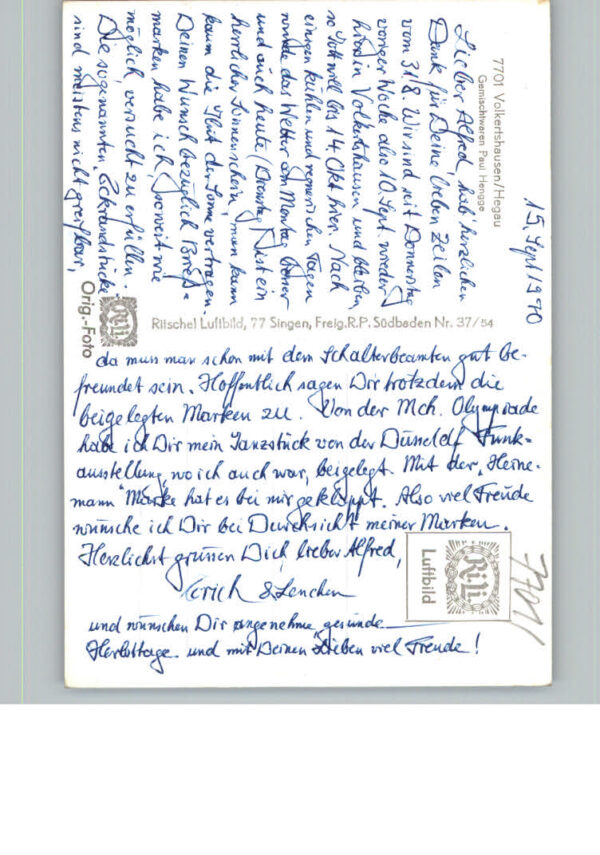 7701 Volkertshausen/Hegau
Gemischtwaren Paul Hengge
15. Sept 1970
Lieber Alfred, hab' herzlichen
Dank für Deine lieben Zeilen
vom 31/8. Wir sind seit Donnerstag
voriger Woche also 10. Sept. wieder
hier in Volkertshausen und bleiben,
so Gott will bis 14. Okt. hier. Nach
einigen kühlen und regnerischen Tagen
wurde das Wetter am Montag besser
und auch heute (Dienstag) ist ein
herrlicher Sonnenschein, man kann
kaum die Hitze der Sonne vertragen.
Deinen Wunsch bezüglich Brief-
marken habe ich, soweit wie
möglich, versucht zu erfüllen.
Die sogenannten Eckrandstücke
sind meistens nicht greifbar,
Orig.-Foto
Ri.Li.
Ritschel Luftbild, 77 Singen, Freig.R.P. Südbaden Nr. 37/54
da muss man schon mit dem Schalterbeamten gut be-
freundet sein. Hoffentlich sagen Dir trotzdem die
beigelegten Marken zu. Von der Mch. Olympiade
habe ich Dir mein Tanzstück von der Düsseldf Funk-
ausstellung, wo ich auch war, beigelegt. Mit der "Heine-
mann" Marke hat es bei mir geklappt. Also viel Freude
wünsche ich Dir bei Durchsicht meiner Marken.
Herzlichst grüssen Dich, lieber Alfred,
Erich & Lenchen
und wünschen Dir angenehme, gesunde
Herbsttage und mit Deinen Lieben viel Freude!
Ri.Li.
Luftbild
7701